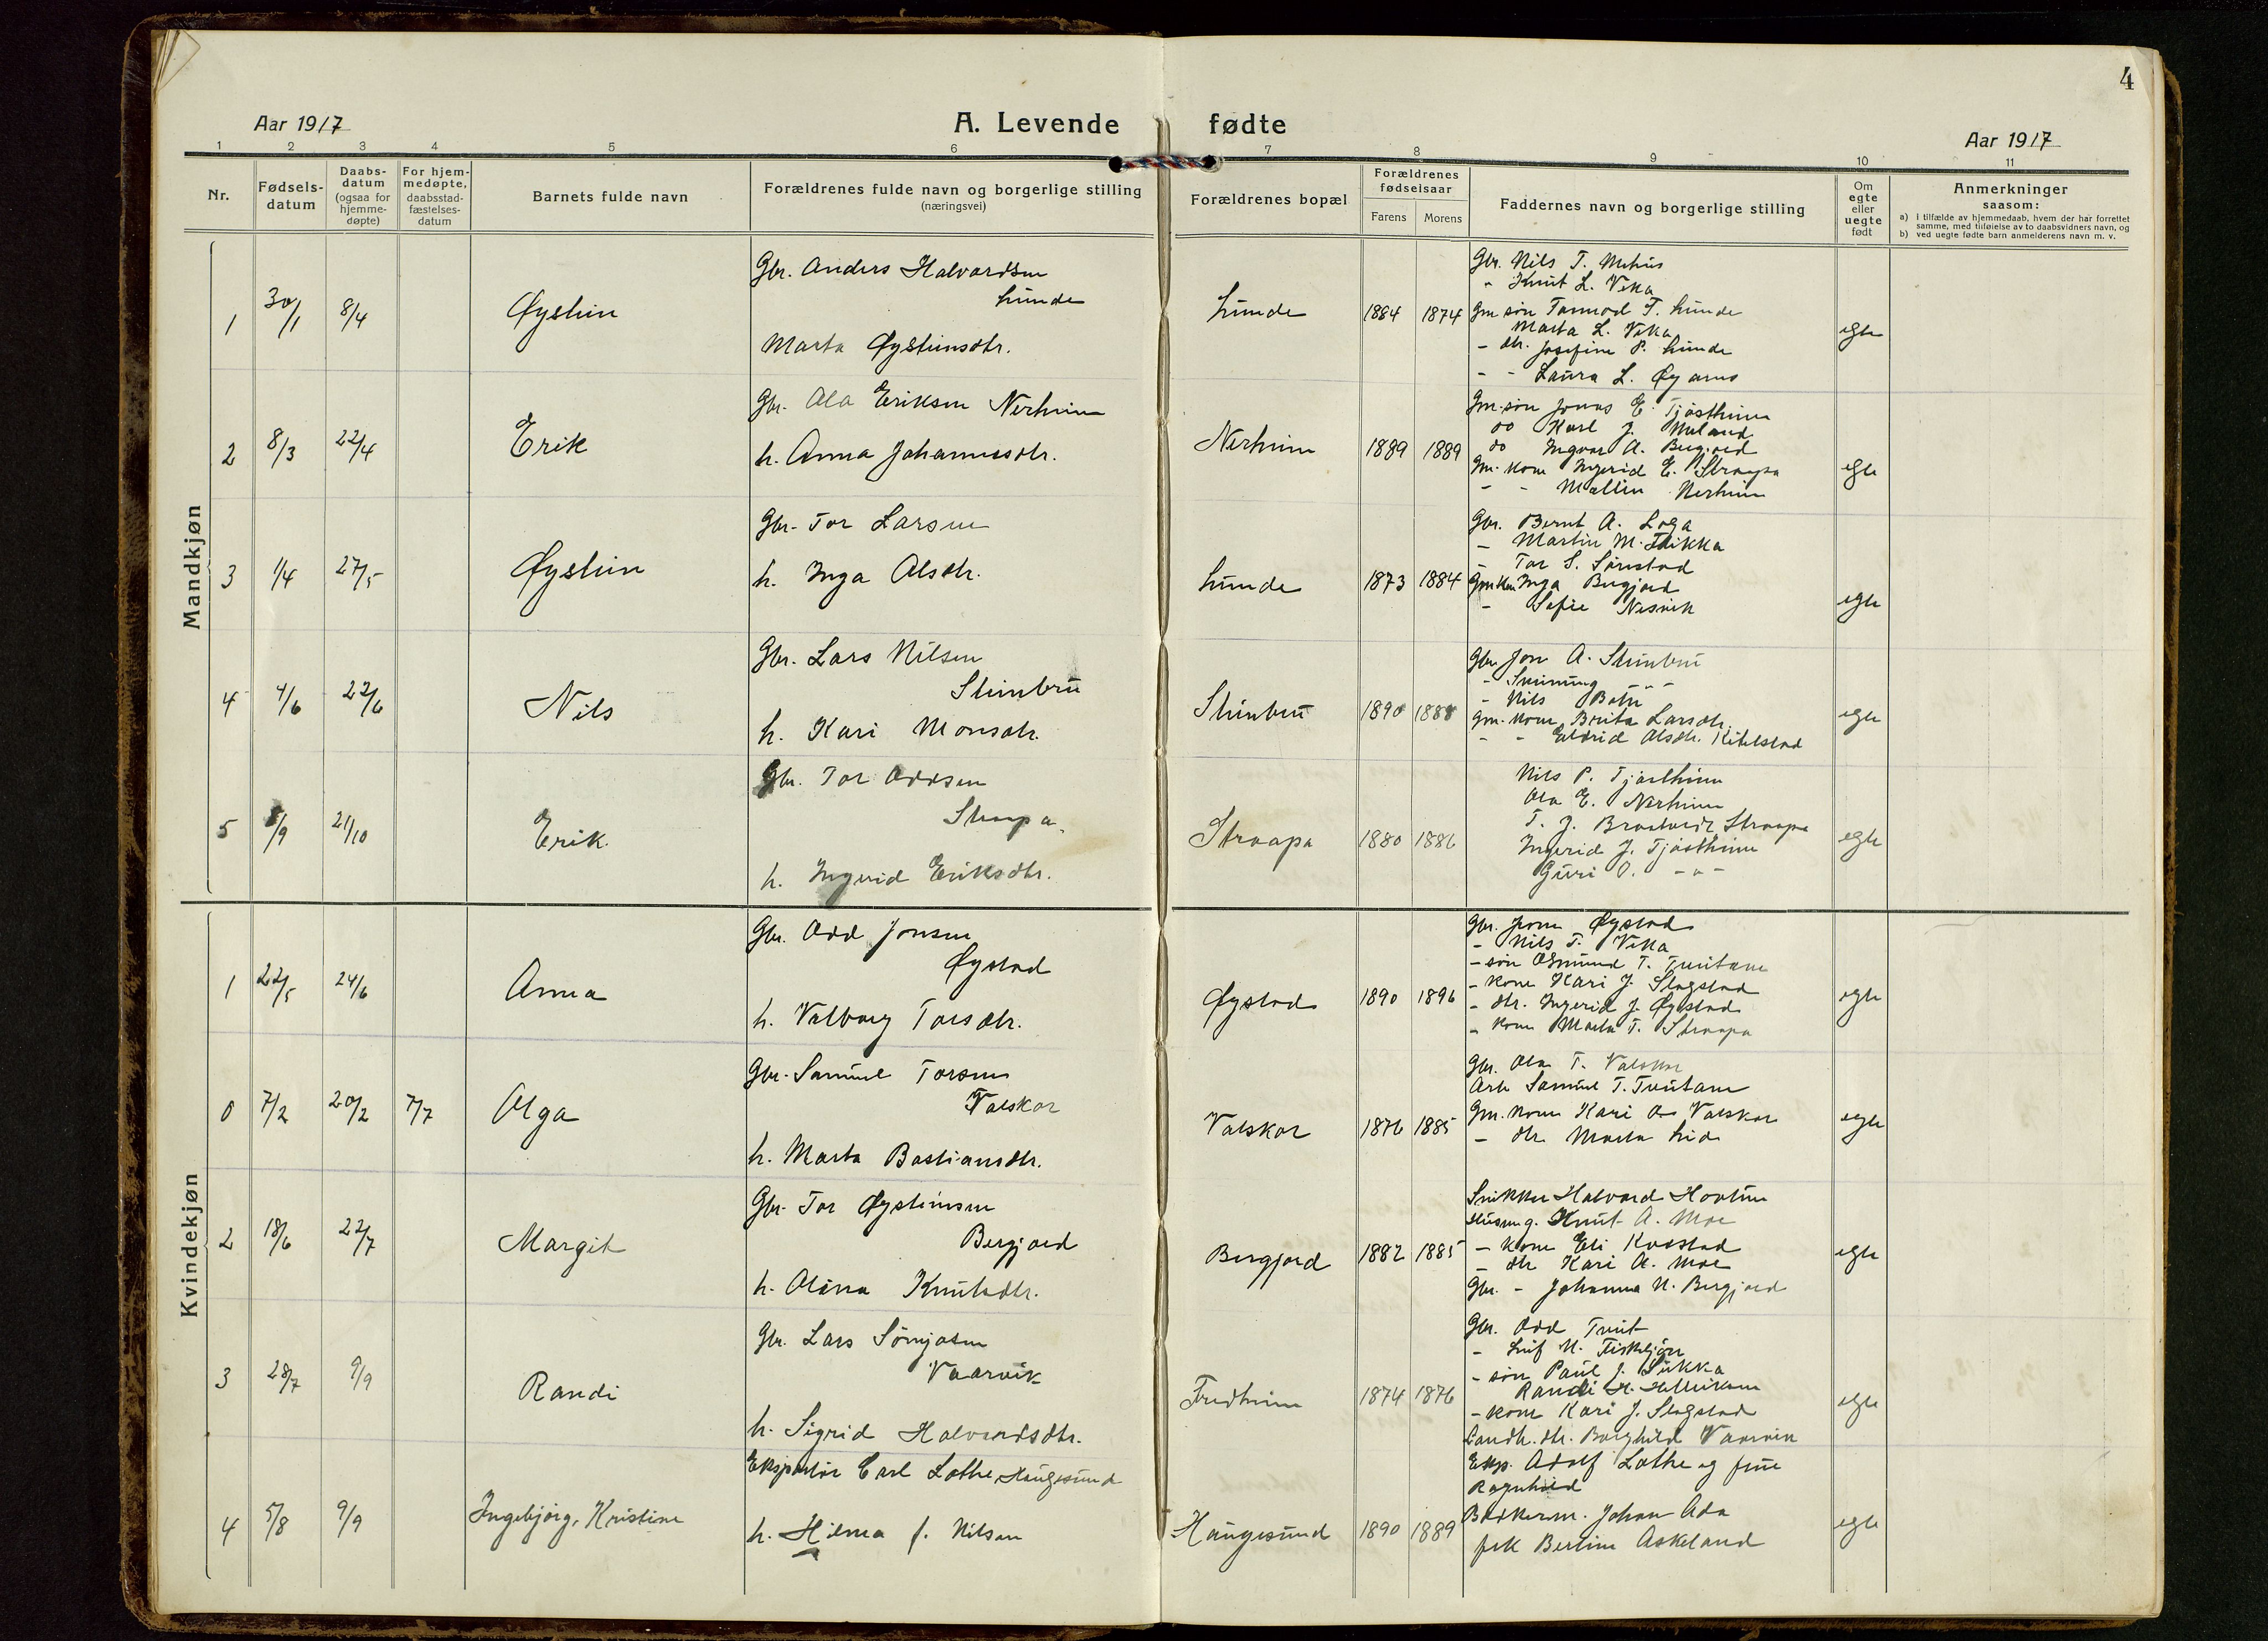 4
Aar 1917
A. Levende fødte
Aar 1917
1 2 3 4 5 6 7 8 9 10 11
Nr.
Fødsels-
datum
Daabs-
datum
(ogsaa for
hjemme-
døpte)
For hjem-
medøpte,
daabsstad-
fæstelses-
datum
Barnets fulde navn
Forældrenes fulde navn og borgerlige stilling
(næringsvei)
Forældrenes bopæl
Forældrenes
fødselsaar
Farens Morens
Faddernes navn og borgerlige stilling
Om
egte
eller
uegte
født
Anmerkninger
saasom:
a) i tilfælde av hjemmedaab, hvem der har forrettet
samme, med tilføielse av to daabsvidners navn, og
b) ved uegte fødte barn anmelderens navn m. v.
Mandkjøn
1 30/1 8/4 Øystein
Gbr. Anders Halvardsen
Lunde
Marta Øysteinsdtr.
Lunde 1884 1874
Gbr. Nils T. Mehus
" Knut L. Vika
Gm søn Tarmod T. Lunde
Marta L. Vika
- dtr. Josefine P. Lunde
- - Laura L. Øyarns
egte
2 8/3 22/4 Erik
Gbr. Ola Eriksen Nerheim
h. Anna Johannesdtr.
Nerheim 1889 1889
Gm. søn Jonas E. Tjøstheim
do Karl J. Meland
do Ingvar A. Bergjord
Gm. kone Ingerid E. Straapa
- - Mallin Nerheim
egte
3 1/4 27/5 Øystein
Gbr. Tor Larsen
h. Inga Olsdtr.
Lunde 1873 1884
Gbr. Bernt A. Loga
- Martin M.
- Tor S. Sørestad
Gm kon Inga Bergjord
- Sofie Nesvik
egte
4 4/6 22/6 Nils
Gbr. Lars Nilsen
Steinbru
h. Kari Monsdtr.
Steinbru 1890 1888
Gbr. Jon A. Steinbru
- Sveinung - " -
- Nils
Gm. kone Brita Larsdtr.
- - Eldrid Olsdtr. Kitelstad
egte
5 /9 21/10 Erik
Gbr. Tor Oddsen
Straapa.
h. Ingerid Eriksdtr.
Straapa 1880 1886
Nils P. Tjøstheim
Ola E. Nerheim
T. J. Bratveit Straapa
Ingerid J. Tjøstheim
Guri O. - " -
egte
Kvindekjøn
1 22/5 24/6 Anna
Gbr. Odd Jonsen
Øystad
h. Valborg Torsdtr.
Øystad 1890 1896
Gbr. Jone Øystad
- Nils T. Vika
- søn Osmund T. Tveitane
- kone Kari J. Slagstad
- dtr. Ingerid J. Øystad
- kone Marta T. Straapa
egte
0 7/2 20/2 7/7 Olga
Gbr. Samuel Torsen
Valskar
h. Marta Bastiansdtr.
Valskar 1876 1885
Gbr. Ola T. Valskar
Arb Samuel T. Tveitane
Gm. kone Kari Valskar
- dtr. Marta Lid
egte
2 18/6 22/7 Margit
Gbr. Tor Øysteinsen
Bergjord
h. Olina Knutsdtr.
Bergjord 1882 1885
Snikker Halvard Hovtun
Husmg. Knut A. Moe
- kone Eli Kvestad
- dtr Kari A. Moe
Gbr. - Johanna N. Bergjord
egte
3 28/7 9/9 Randi
Gbr. Lars Sønjasen
Vaarvik
h. Sigrid Halvardsdtr.
Fredheim 1874 1876
Gbr. Odd Tveit
- Leif N. Fiskekjøn
- søn Paul J. Sukka
Randi H.
- kone Kari J. Slagstad
Landh. dtr. Borghild Vaarvik
egte
4 5/8 9/9 Ingebjørg, Kristine
Eksportør Carl Lothe Haugesund
h. Hilma f. Nilsen
Haugesund 1890 1889
Eksp. Adolf Lothe og frue
Ragnhild
Bødkerm. Johan Ada
frk Bertine Askeland
egte